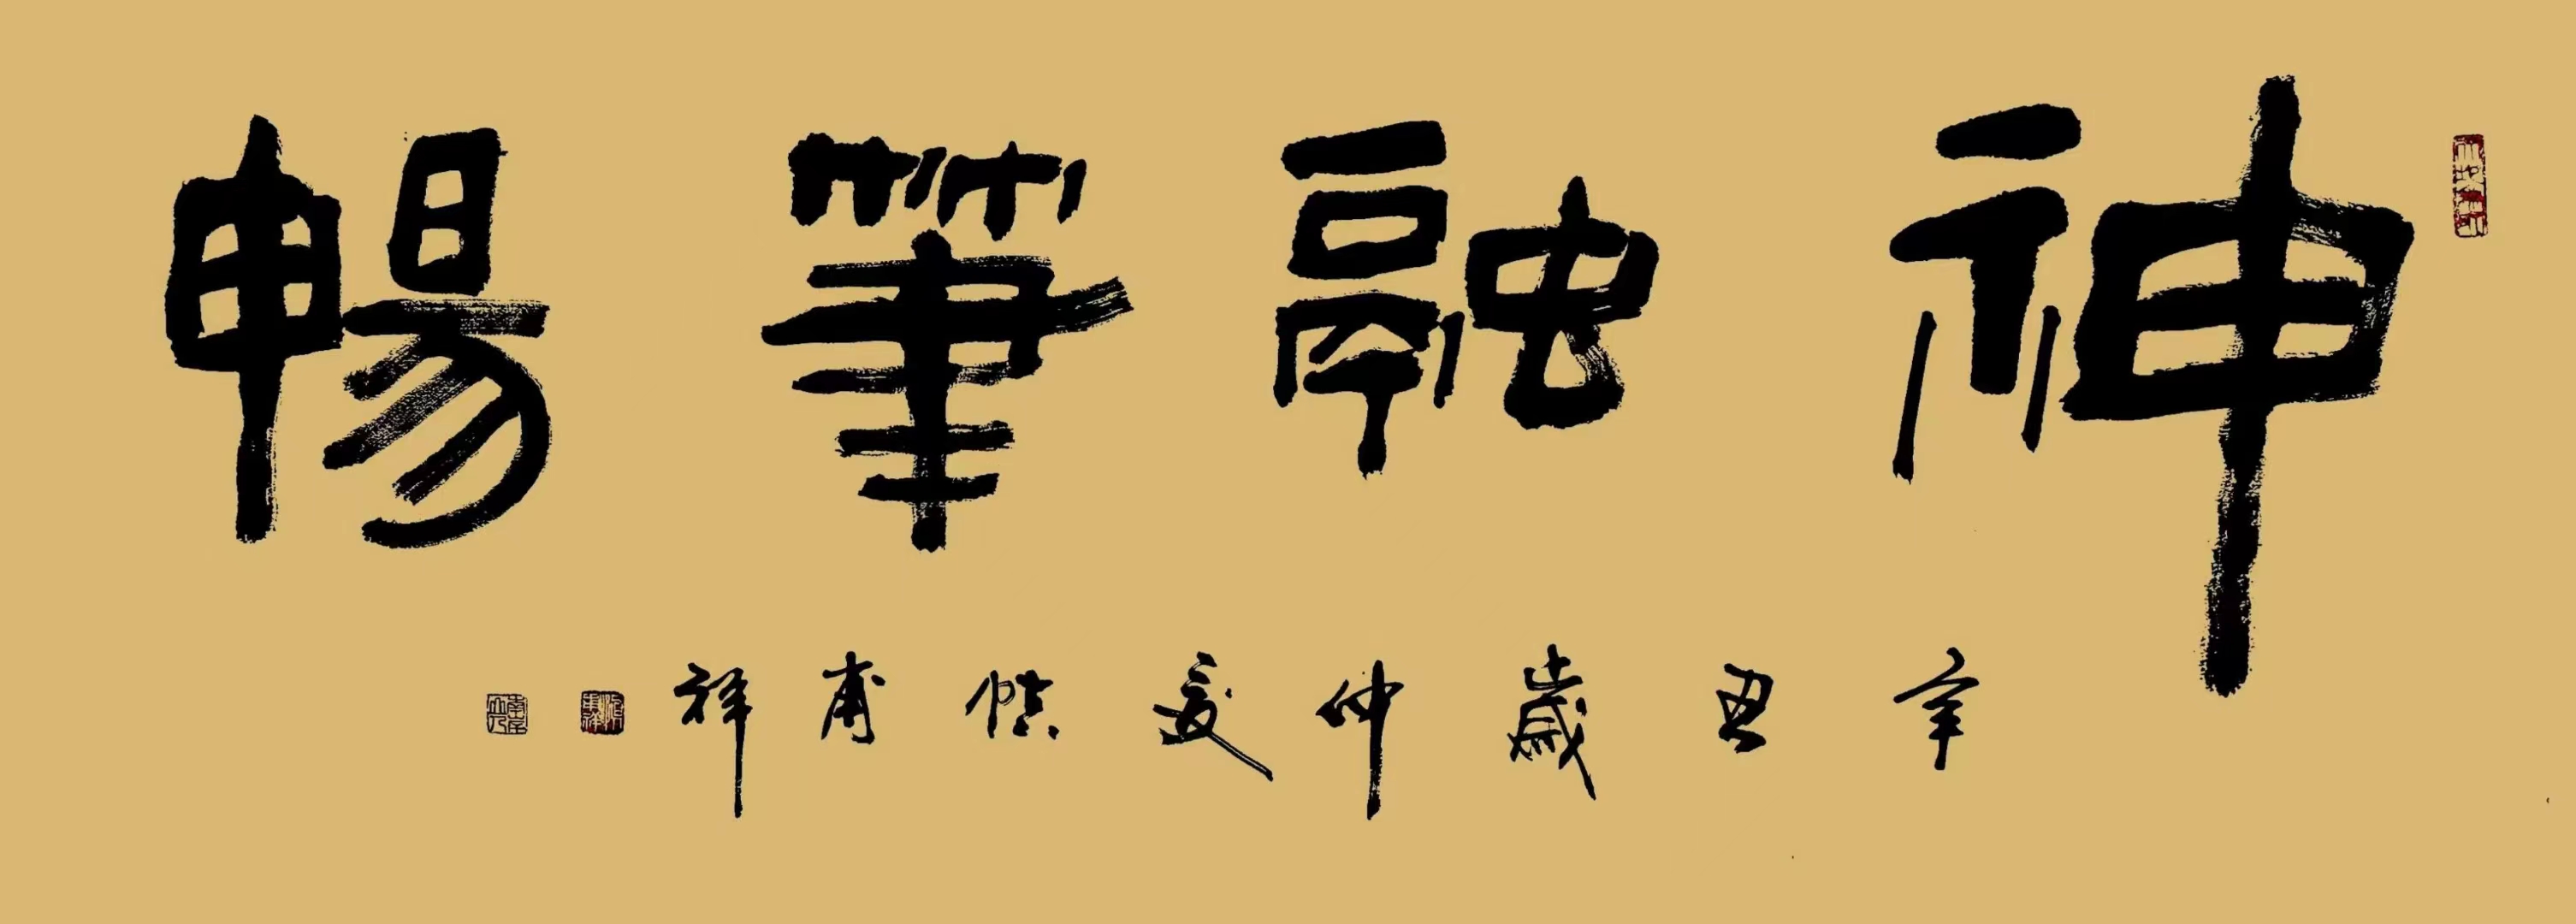 神融筆暢
辛丑歲仲夏甫祥